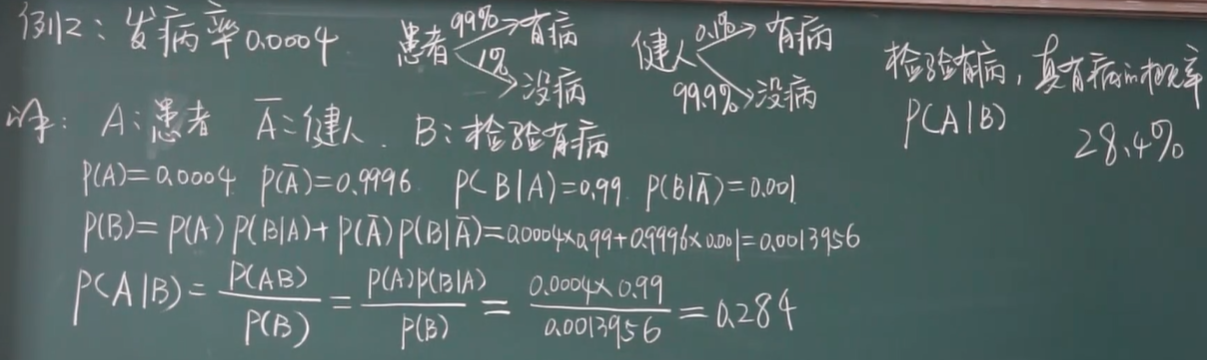 例2：发病率0.0004 患者 99%→有病 1%→没病 健人 0.1%→有病 99.9%→没病 检验有病，真有病的概率
解：A：患者 Ā：健人. B：检验有病 P(A|B) 28.4%
P(A)=0.0004 P(Ā)=0.9996 P(B|A)=0.99. P(B|Ā)=0.001
P(B)=P(A)P(B|A)+P(Ā)P(B|Ā)=0.0004×0.99+0.9996×0.001=0.0013956
P(A|B)=P(AB)/P(B)=P(A)P(B|A)/P(B)=0.0004×0.99/0.0013956=0.284